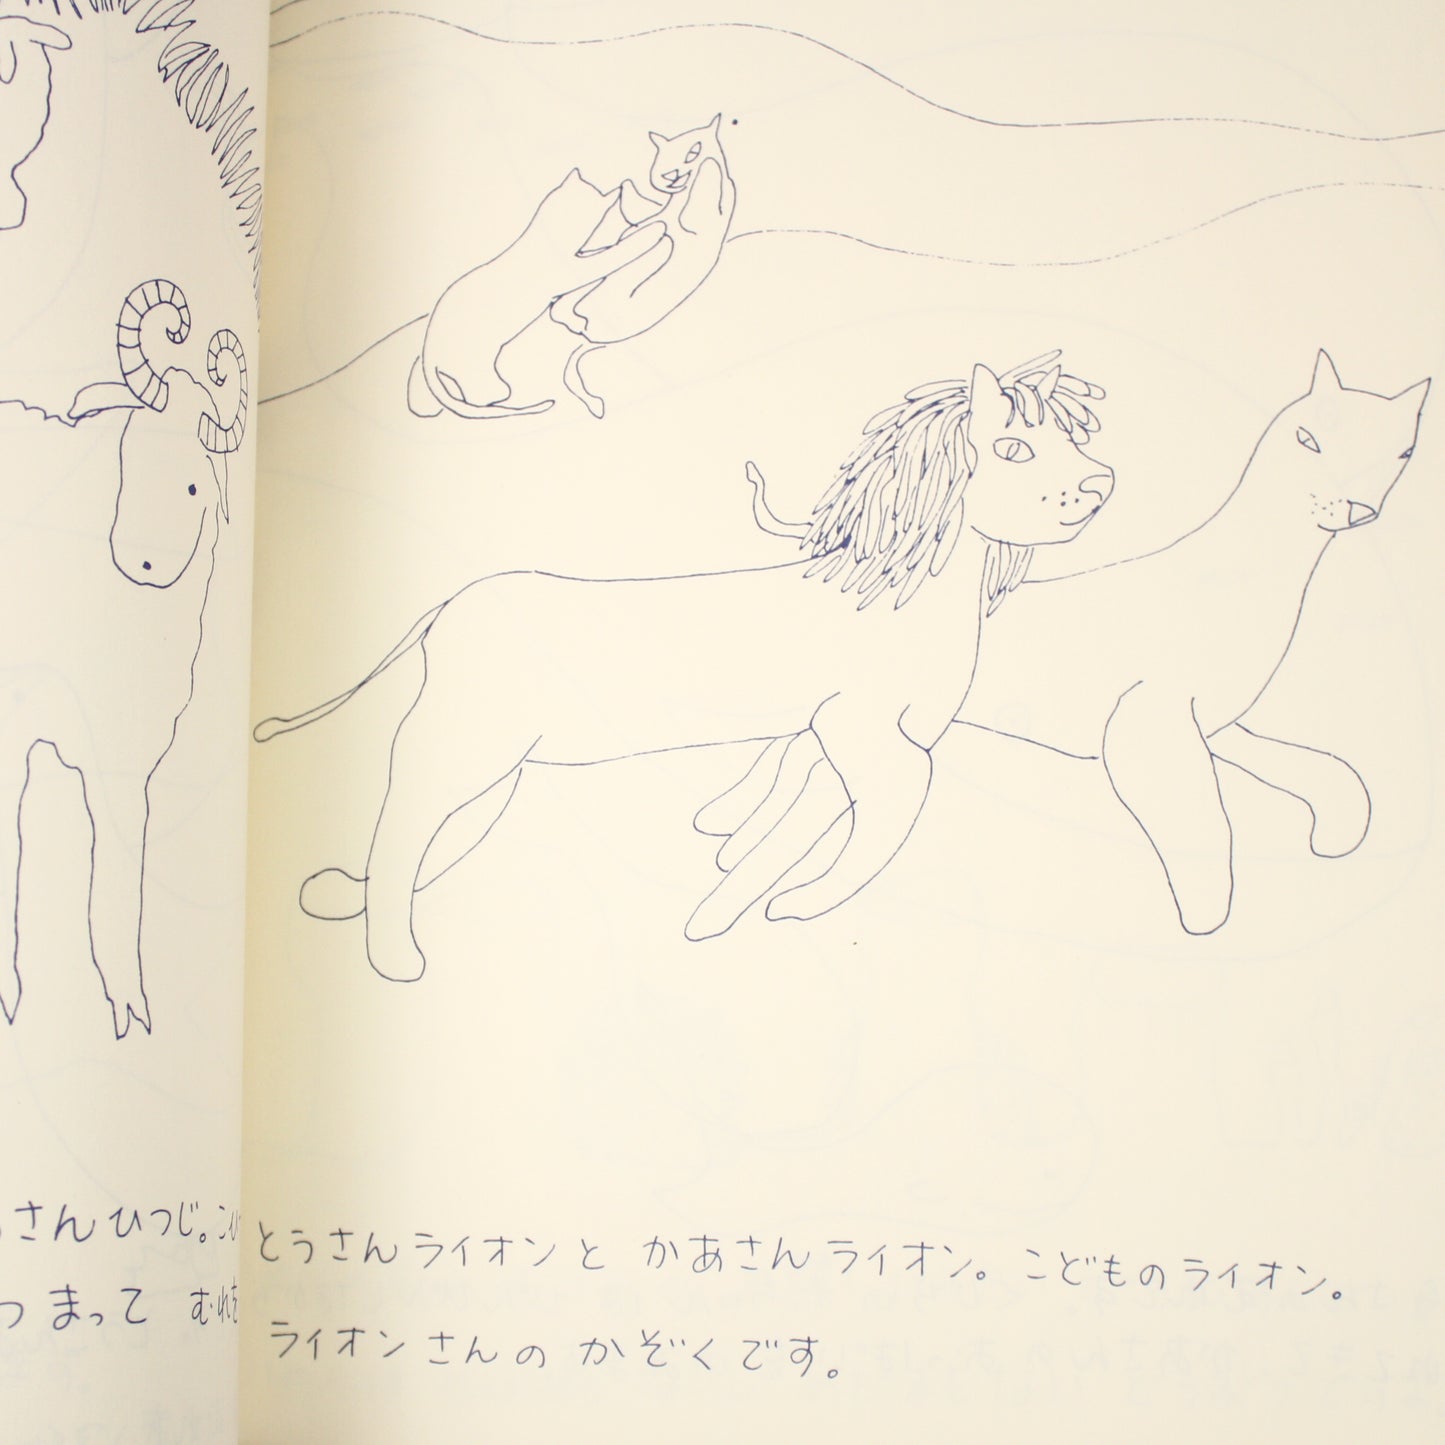 さんひつじ。こひ
つまって むれを
とうさんライオンと かあさんライオン。こどものライオン。
ライオンさんの かぞくです。